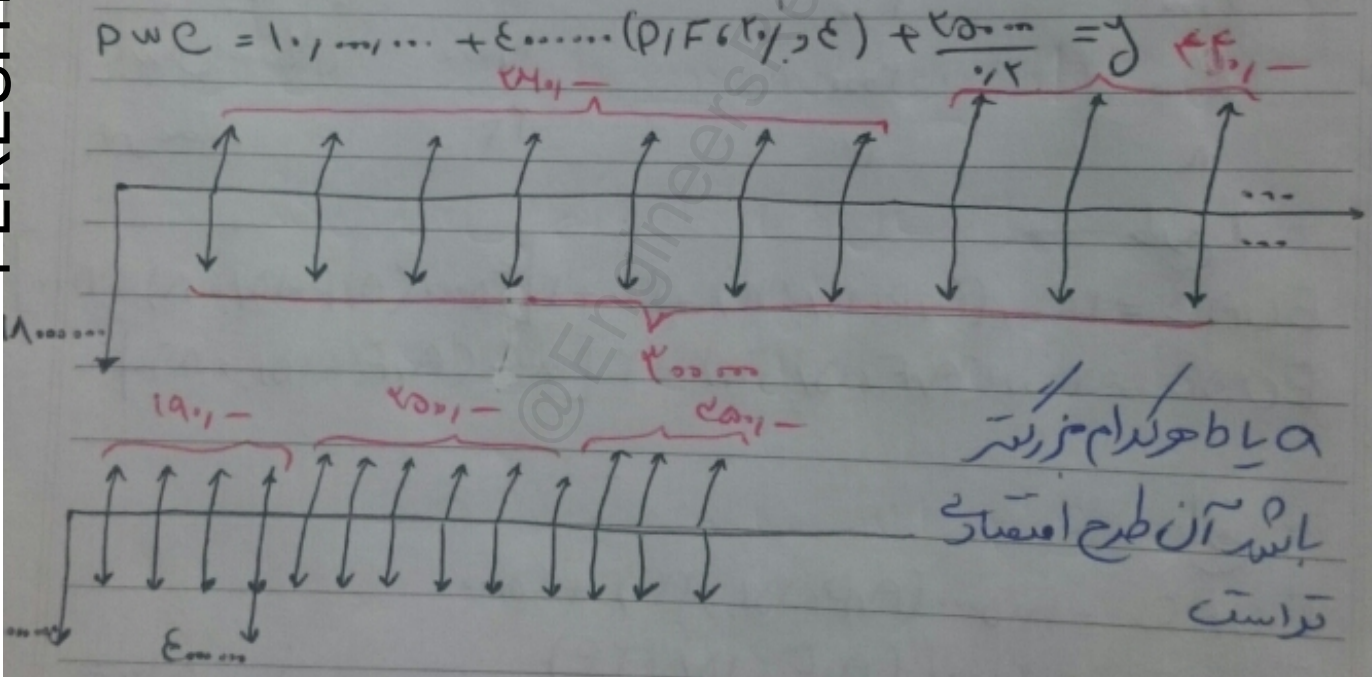 PWC = ۱۰,۰۰۰,۰۰۰ + ٤۰۰۰۰۰۰ (P/F،۲۰٪,٤) + ۲۵۰۰۰۰ / ۰/۲ = y
۴۴۰,—
۲۰۰۰۰۰
۱۹۰,— ۲۵۰,— ۴۵۰,—
a یا b هرکدام بزرگتر
باشد آن طرح اقتصادی
تر است
٤۰۰۰۰۰۰
@Engineers